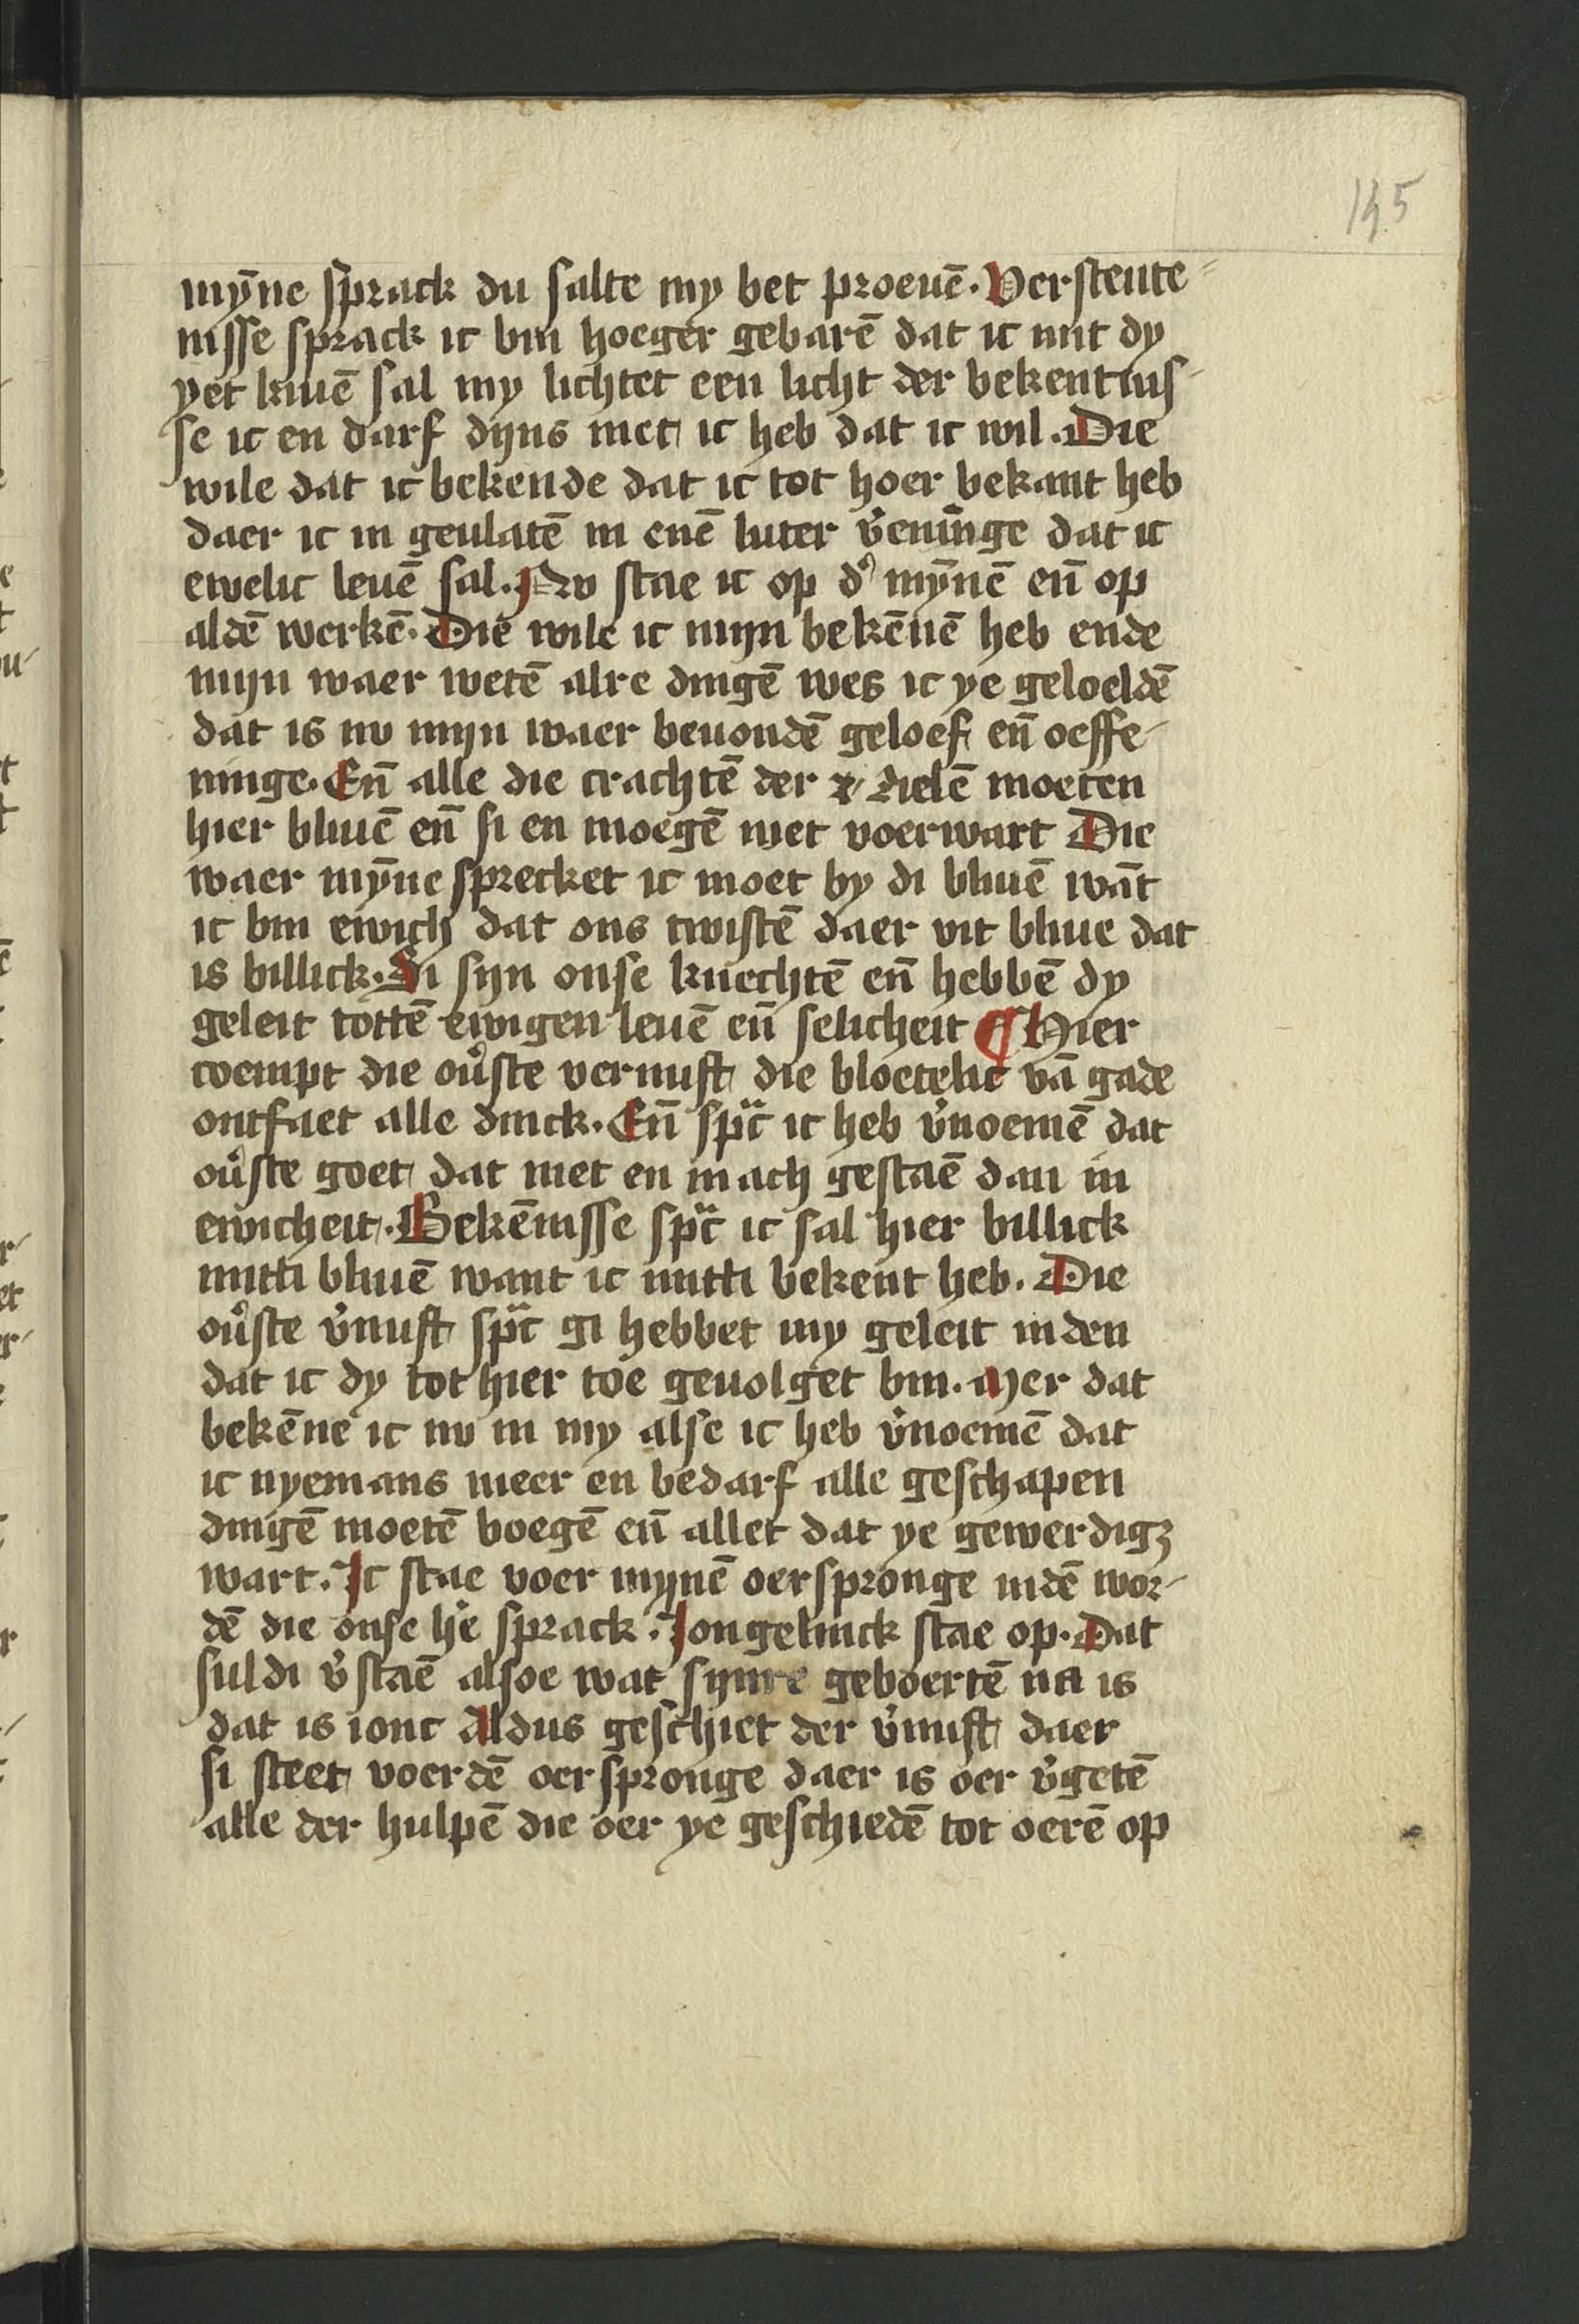 145
mȳne sprack du salte my bet proeuē. Verstente⸗
nisse sprack ic bin hoeger gebarē dat ic mit dy
yet kiuē sal my lichtet een licht der bekentnis-
se ic en darf dyns niet ic heb dat ic wil. Die
wile dat ic bekende dat ic tot hoer bekant heb
daer ic in geulatē in enē luter v̓eninge dat ic
ewelic leuē sal. Nv stae ic op d' mȳnē en̄ op
aldē werkē. Die wile ic mijn bekēnē heb ende
mijn waer wetē alre dingē wes ic ye geloeldē
dat is nv mijn waer beuondē geloef en̄ oeffe-
ninge. En̄ alle die crachtē der zielē moeten
hier bliuē en̄ si en moegē niet voerwart Die
waer mȳne sprecket ic moet by di bliuē wāt
ic bin ewich dat ons twistē daer vit bliue dat
is billick. Si sijn onse knechtē en̄ hebbē dy
geleit tottē ewigen leuē en̄ selicheit ¶ Hier
coempt die ou̓ste vernuft die bloetelic vā gade
ontfaet alle dinck. En̄ sp̄c ic heb v̓noemē dat
ou̓ste goet dat niet en mach gestaē dan in
ewicheit. Bekēnisse sp̄c ic sal hier billick
mitti bliuē want ic mitti bekent heb. Die
ou̓ste v̓nuft sp̄c gi hebbet my geleit in den
dat ic dy tot hier toe geuolget bin. Mer dat
bekēne ic nv in my alse ic heb v̓noemē dat
ic nyemans meer en bedarf alle geschapen
dingē moetē boegē en̄ allet dat ye gewerdigꝫ
wart. Ic stae voer mijnē oerspronge indē wor-
dē die onse he̓ sprack. Iongelinck stae op. Dat
suldi v̓staē alsoe wat sijnre geboertē na is
dat is ionc Aldus geschiet der v̓nuft daer
si steet voerdē oerspronge daer is oer v̓getē
alle der hulpē die oer ye geschiedē tot oerē op